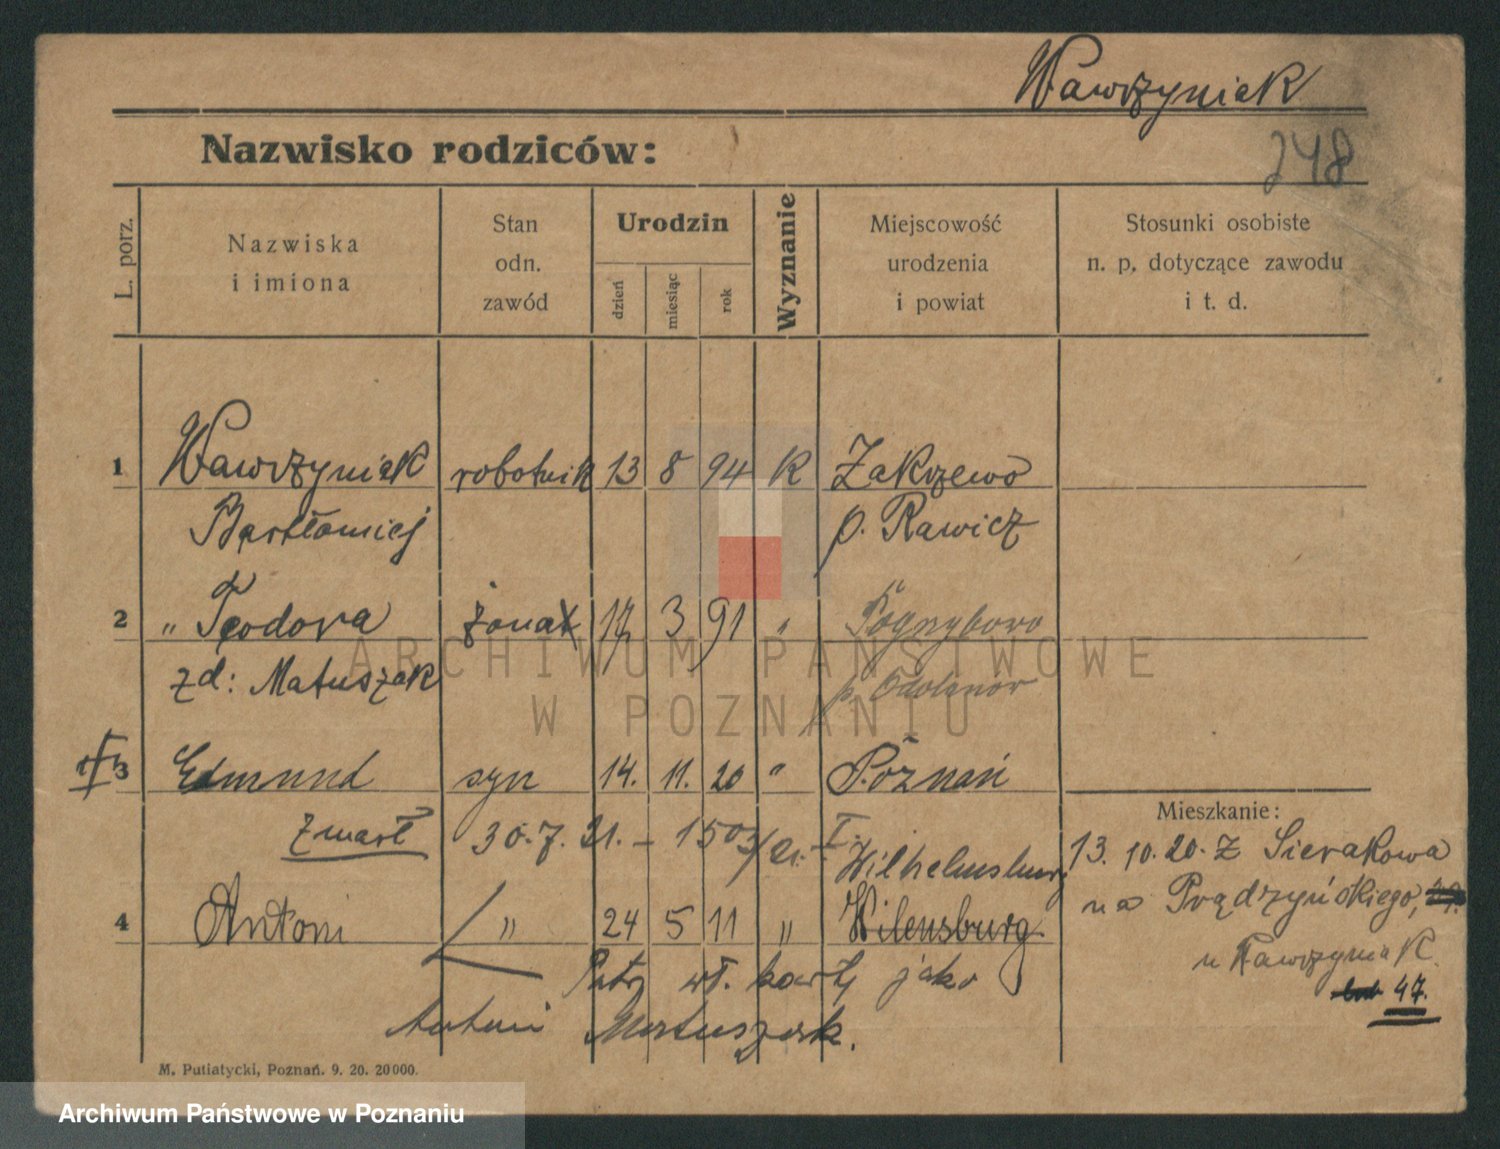 Wawrzyniak
Nazwisko rodziców:
248
L. porz.
Nazwiska
i imiona
Stan
odn.
zawód
Urodzin
dzień
miesiąc
rok
Wyznanie
Miejscowość
urodzenia
i powiat
Stosunki osobiste
n. p. dotyczące zawodu
i t. d.
1 Wawrzyniak robotnik 13 8 94 K Zakrzewo
Bartłomiej p. Rawicz
2 " Teodora żona 3 91 " Pogrzybowo
zd: Matuszak p. Odolanów
3 Edmund syn 14. 11. 20 " Poznań
Mieszkanie:
zmarł 30. 7. 21. - 1503/21. I.
Wilhelmsburg
13. 10. 20. Z Sierakowa
na Prądzyńskiego,
4 Antoni " 24 5 11 " Wilensburg
u Wawrzyniak
47.
Patrz wł. karty jako
Antoni Matuszak.
M. Putiatycki, Poznań. 9. 20. 20000.
ARCHIWUM PAŃSTWOWE
W POZNANIU
Archiwum Państwowe w Poznaniu